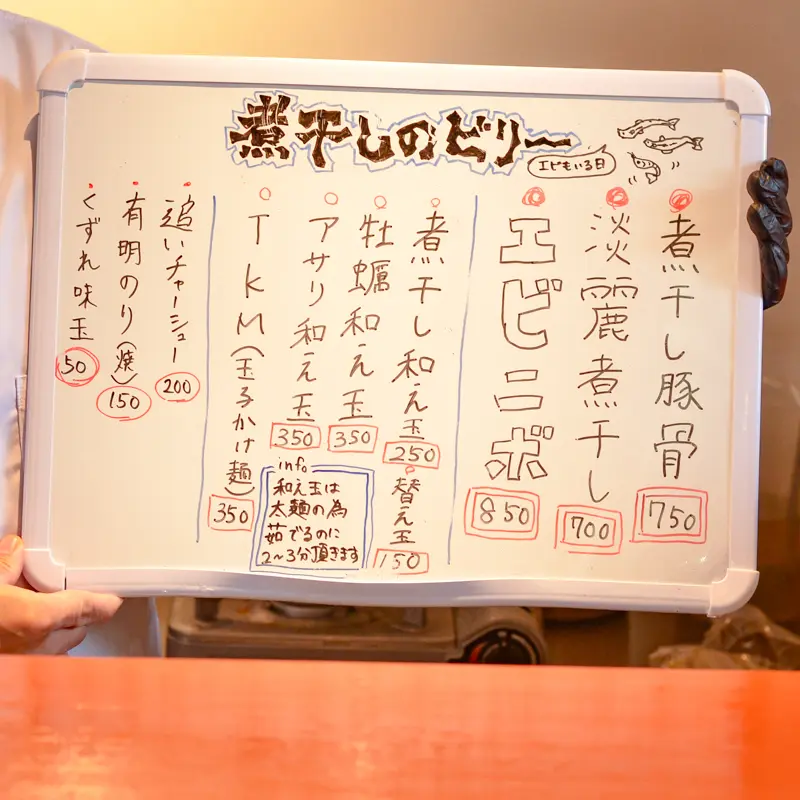 煮干しのビリー
エビもいる日
煮干し豚骨
750
淡麗煮干し
700
エビニボ
850
煮干し和え玉
250
替え玉
150
牡蠣和え玉
350
アサリ和え玉
350
TKM(玉子かけ麺)
350
info
和え玉は
太麺の為
茹でるのに
2~3分頂きます
追いチャーシュー
200
有明のり(焼)
150
くずれ味玉
50